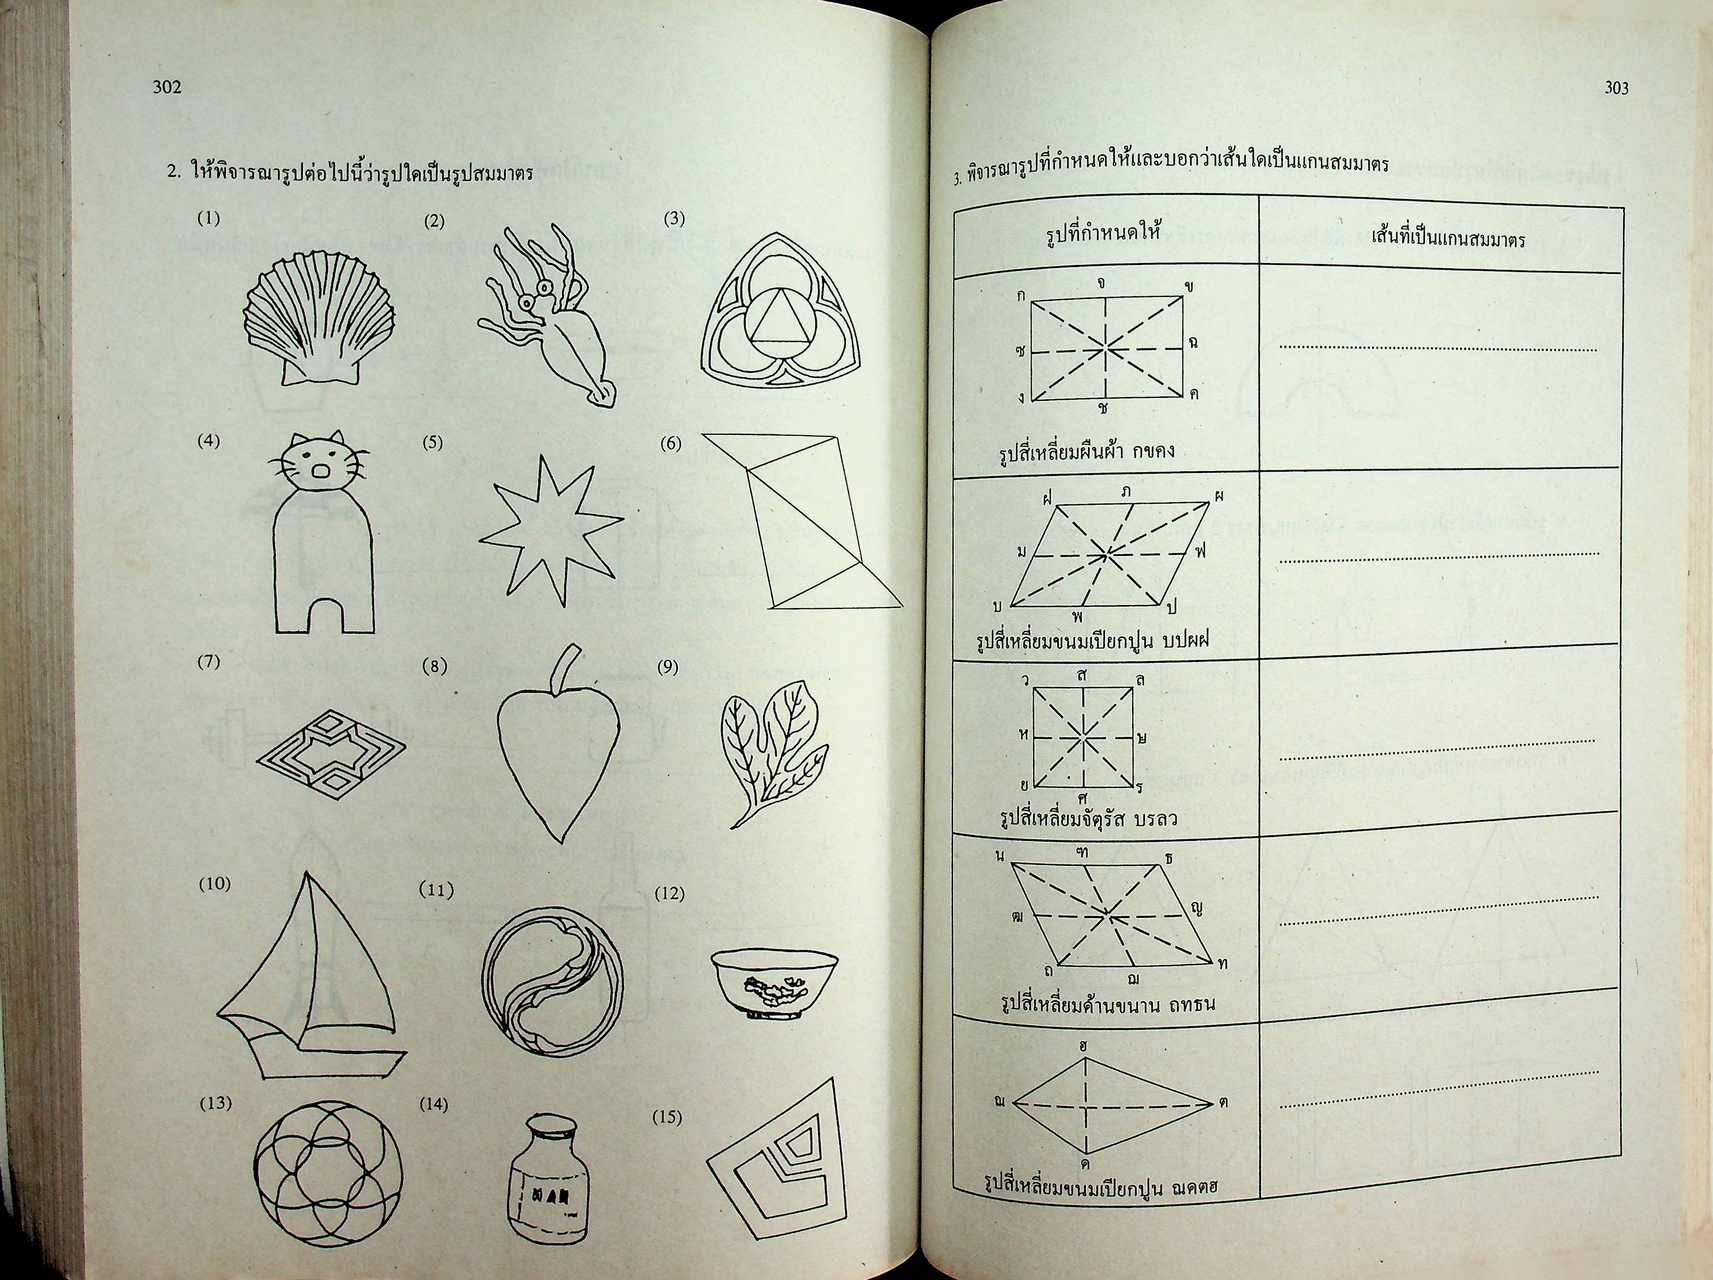 302
2. ให้พิจารณารูปต่อไปนี้ว่ารูปใดเป็นรูปสมมาตร
(1) (2) (3)
(4) (5) (6)
(7) (8) (9)
(10) (11) (12)
(13) (14) (15)
303
3. พิจารณารูปที่กำหนดให้และบอกว่าเส้นใดเป็นแกนสมมาตร
รูปที่กำหนดให้ เส้นที่เป็นแกนสมมาตร
ก จ ข
ซ ฉ
ง ช ค
รูปสี่เหลี่ยมผืนผ้า กขคง
ฝ ภ ผ
ม ฟ
บ พ ป
รูปสี่เหลี่ยมขนมเปียกปูน บปผฝ
ว ส ล
ห ษ
ย ศ ร
รูปสี่เหลี่ยมจัตุรัส บรลว
น ฑ ธ
ฒ ญ
ถ ฌ ท
รูปสี่เหลี่ยมด้านขนาน ถทธน
ฮ
ณ ต
ด
รูปสี่เหลี่ยมขนมเปียกปูน ณดตฮ